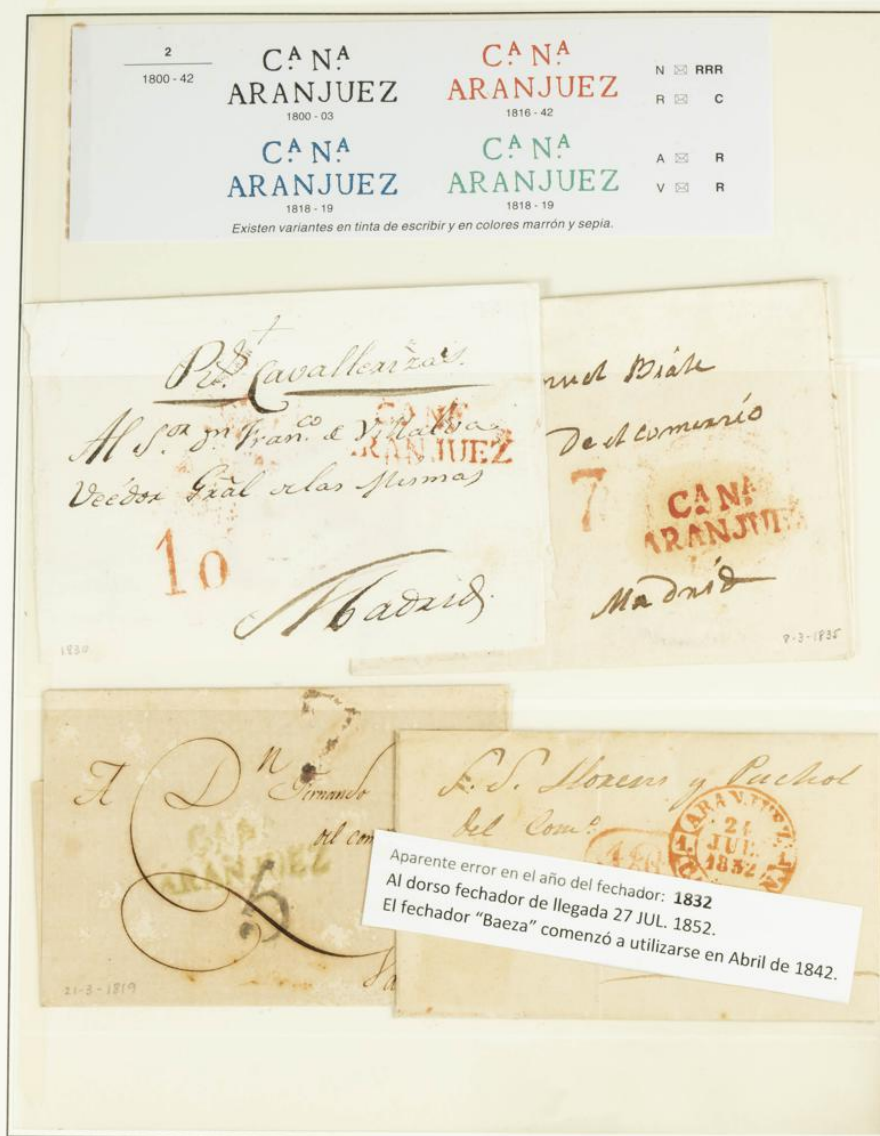 2
1800 - 42
C.A N.A
ARANJUEZ
1800 - 03
C.A N.A
ARANJUEZ
1816 - 42
N ✉ RRR
R ✉ C
C.A N.A
ARANJUEZ
1818 - 19
C.A N.A
ARANJUEZ
1818 - 19
A ✉ R
V ✉ R
Existen variantes en tinta de escribir y en colores marrón y sepia.
Cavallerizas
Al S.or Dn Fran.co de Villalva
Veédor Grãl de las Mismas
CA NA
ARANJUEZ
10
Madrid
1830
Del comercio
7
C.A N.A
ARANJUE
Madrid
8-3-1835
7
A Dn Fernando
del com
CA NA
ARANJUEZ
5
21-3-1819
S. S. Llorens y Puchol
del Com.o
ARANJUEZ
24
JUL.
1832
Aparente error en el año del fechador: 1832
Al dorso fechador de llegada 27 JUL. 1852.
El fechador “Baeza” comenzó a utilizarse en Abril de 1842.